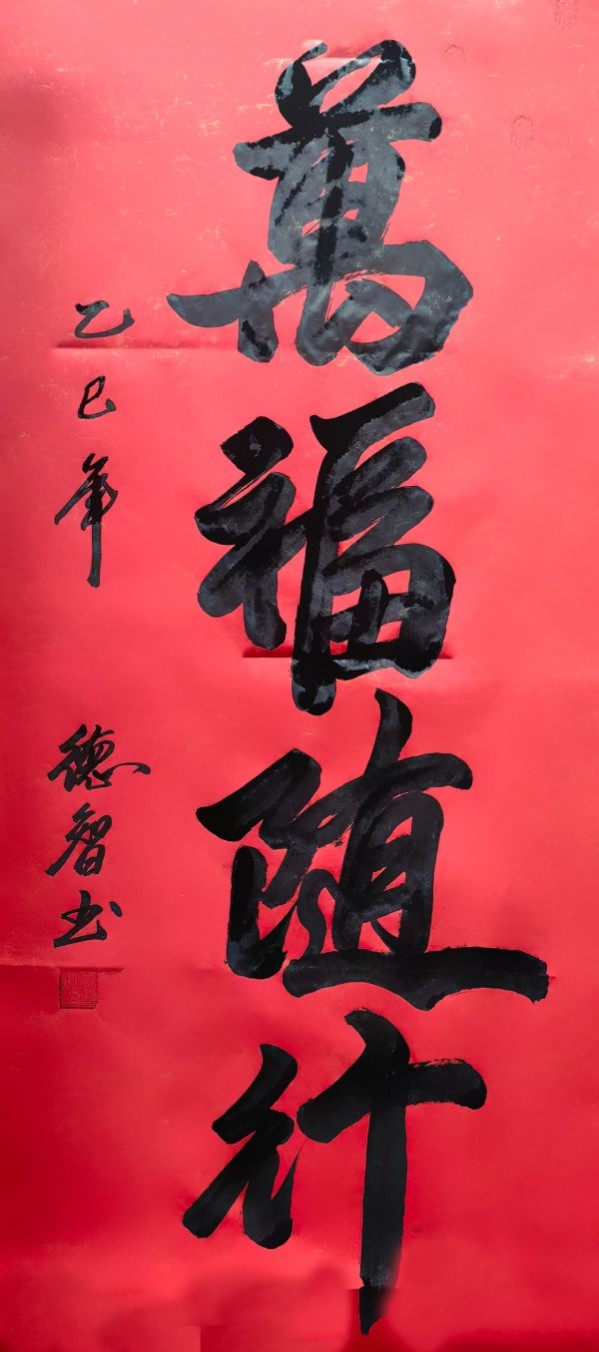 萬福随行
乙巳年
德智书